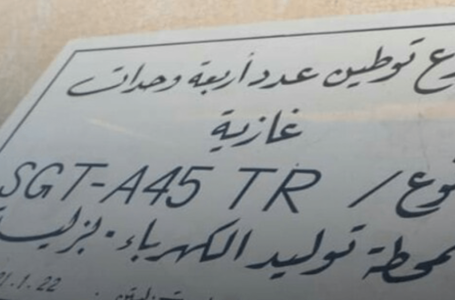 توطين عدد أربعة وحدات
غازية
نوع / SGT-A45 TR
محطة توليد الكهرباء
1.22